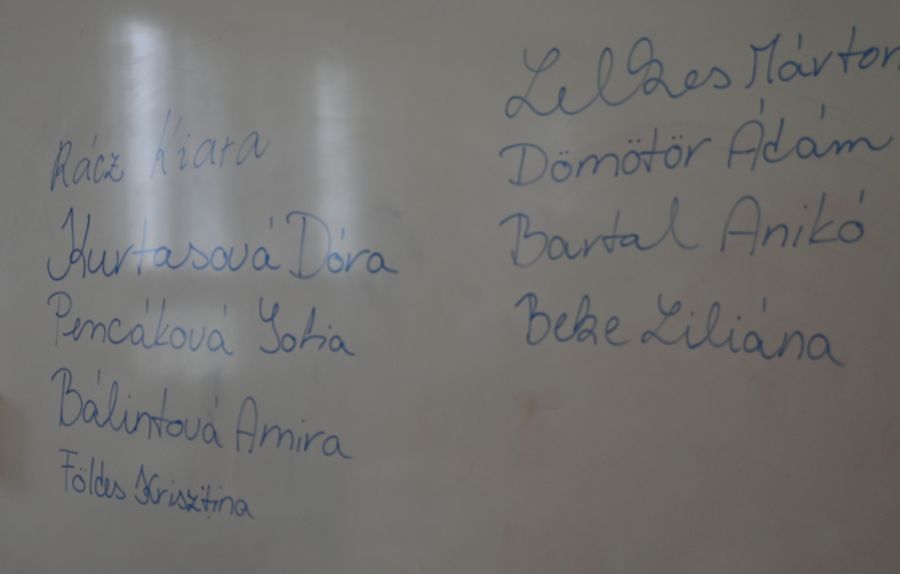 Rácz Kiara
Kurtasová Dóra
Pencáková Sofia
Bálintová Amira
Földes Krisztina
Lelkes Márton
Dömötör Ádám
Bartal Anikó
Beke Liliána